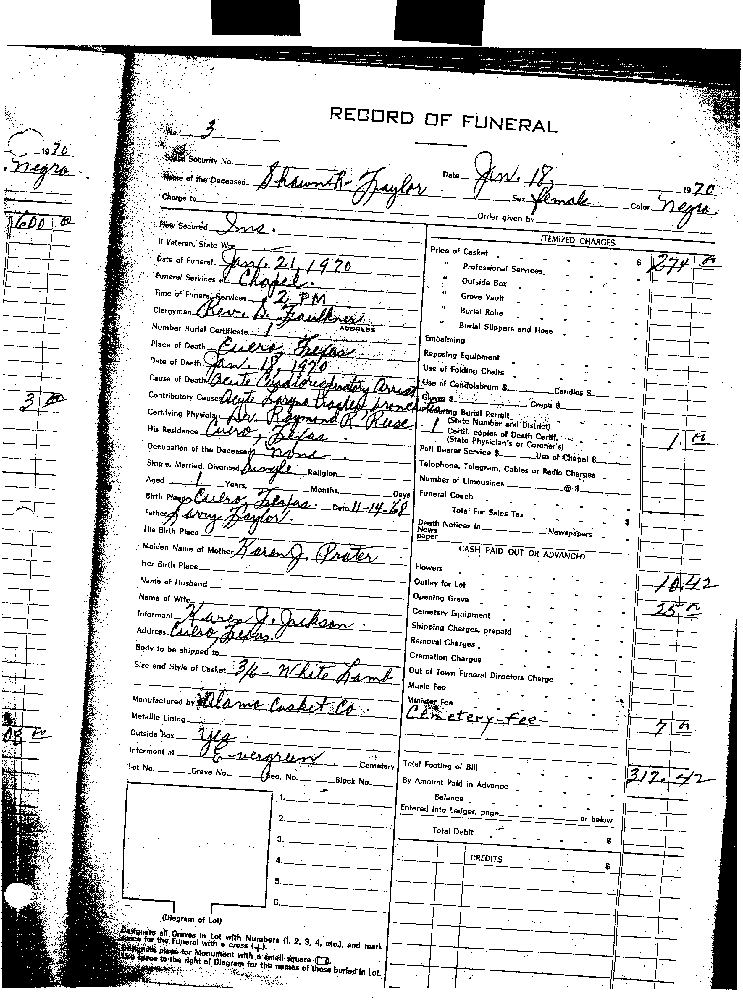 RECORD OF FUNERAL
No. 3
1970
Negro
Social Security No.
Date Jan. 18 1970
Name of the Deceased Shawn R. Taylor Sex female Color Negro
Charge to
Order given by
How Secured Ins.
If Veteran, State War
Date of Funeral Jan. 21, 1970
Funeral Services at Chapel
Time of Funeral Services 2 PM
Clergyman Rev. D. Faulkner
ADDRESS
Number Burial Certificate 1
Place of Death Cuero, Texas
Date of Death Jan. 18, 1970
Cause of Death Acute Cardiorespiratory Arrest
Contributory Cause Acute Laryngo tracheo bronchitis
Certifying Physician Dr. Raymond R. Reese
His Residence Cuero, Texas
Occupation of the Deceased None
Single, Married, Divorced Single Religion
Aged 1 Years, Months, Days
Birth Place Cuero, Texas. Date 11-14-68
Father Larry Taylor.
His Birth Place
Maiden Name of Mother Karen J. Prater
Her Birth Place
Name of Husband
Name of Wife
Informant Karen J. Jackson.
Address Cuero, Texas.
Body to be shipped to
Size and Style of Casket 3/6 - White Lamb
Manufactured by Alamo Casket Co.
Metallic Lining
Outside Box Yes
Interment at Evergreen Cemetery
Lot No. Grave No. Sec. No. Block No.
1.
2.
3.
4.
5.
6.
(Diagram of Lot)
Designate all Graves in Lot with Numbers (1, 2, 3, 4, etc.), and mark
space for the Funeral with a cross (+).
Designate place for Monument with a small square
Use space to the right of Diagram for the names of those buried in Lot.
ITEMIZED CHARGES
Price of Casket $ 274 00
" Professional Services
" Outside Box
" Grave Vault
" Burial Robe
" Burial Slippers and Hose
Embalming
Reposing Equipment
Use of Folding Chairs
Use of Candelabrum $ Candles $
Gloves $ Crepe $
Burial Permit
(State Number and District)
1 Certif. copies of Death Certif. 1 00
(State Physician's or Coroner's)
Pall Bearer Service $ Use of Chapel $
Telephone, Telegram, Cables or Radio Charges
Number of Limousines @ $
Funeral Coach
Total For Sales Tax $
Death Notices in Newspapers
News
paper
CASH PAID OUT OR ADVANCED
Flowers
Outlay for Lot 10.42
Opening Grave 25 00
Cemetery Equipment
Shipping Charges, prepaid
Removal Charges
Cremation Charges
Out of Town Funeral Directors Charge
Music Fee
Minister Fee
Cemetery Fee 7 00
Total Footing of Bill 317.42
By Amount Paid in Advance
Balance
Entered into Ledger, page or below
Total Debit $
CREDITS $
600 00
3 00